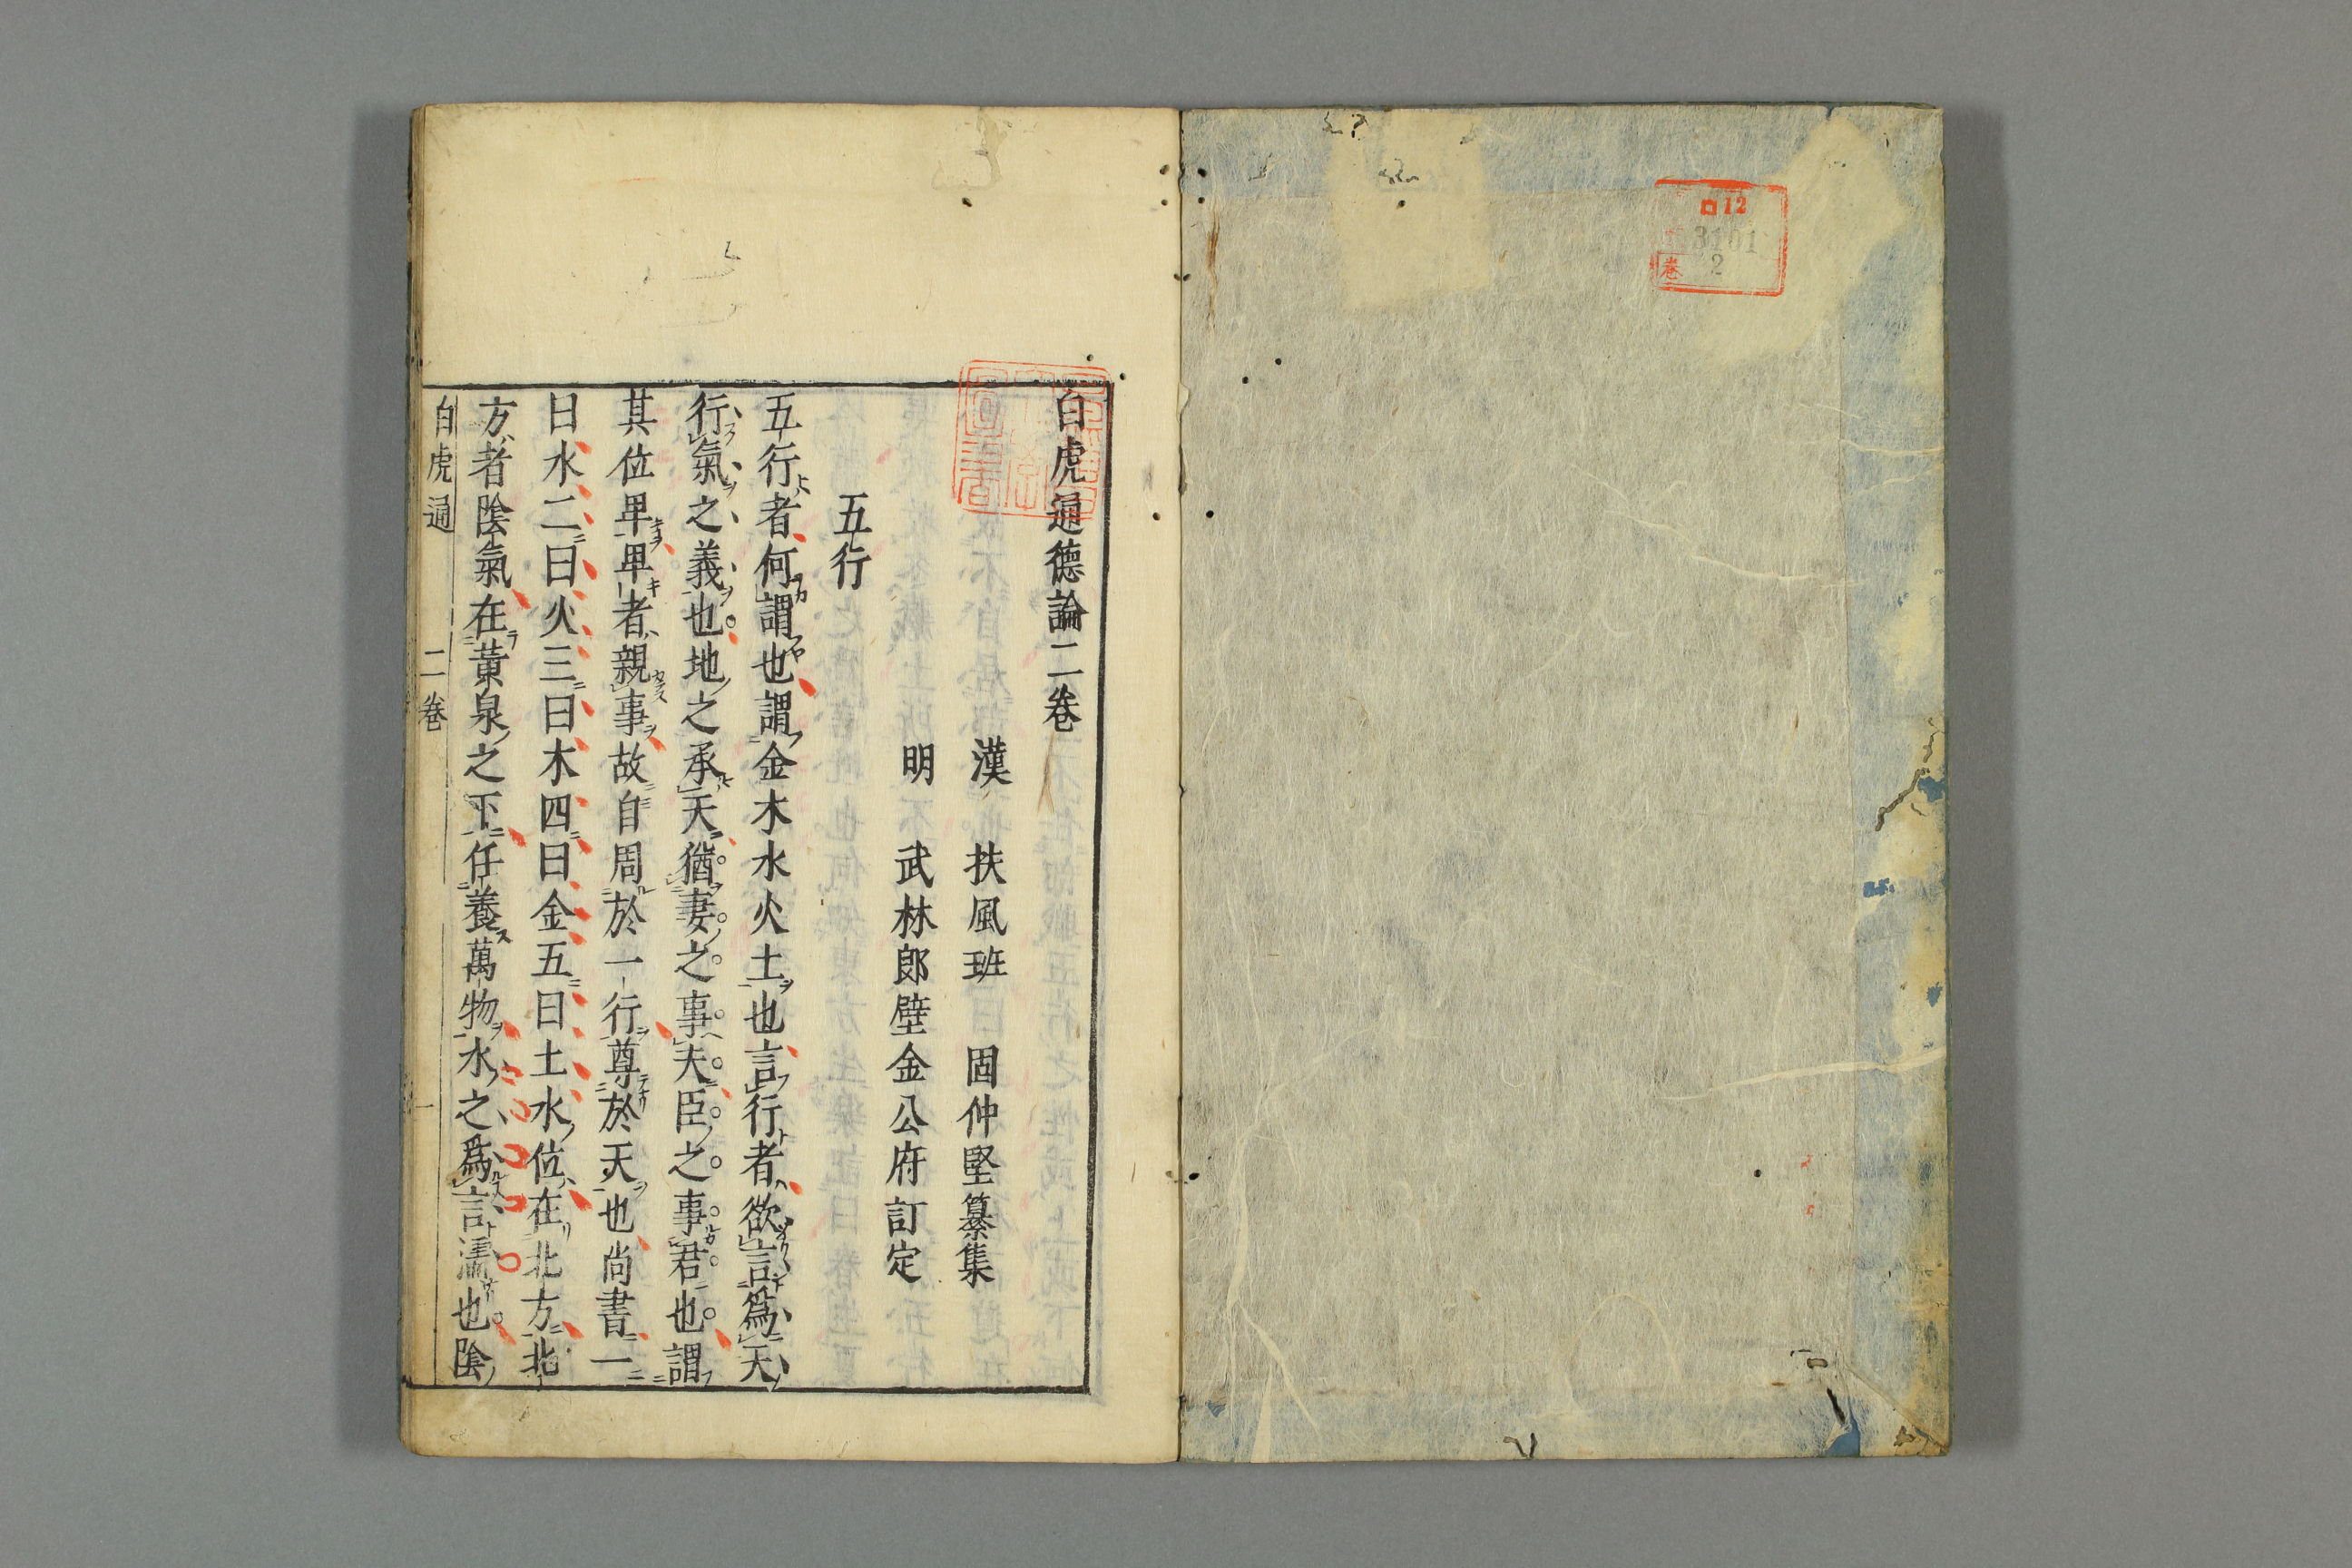 ロ12
3101
卷 2
白虎通德論二卷
漢 扶風班 固仲堅纂集
明 武林郎壁金公府訂定
五行
五行者何謂也謂金木水火土也言行者欲言爲天
行氣之義也地之承天猶妻之事夫臣之事君也謂
其位卑卑者親事故自周於一行尊於天也尚書一
曰水二曰火三曰木四曰金五曰土水位在北方北
方者陰氣在黃泉之下任養萬物水之爲言濡也陰
白虎通 二卷 一